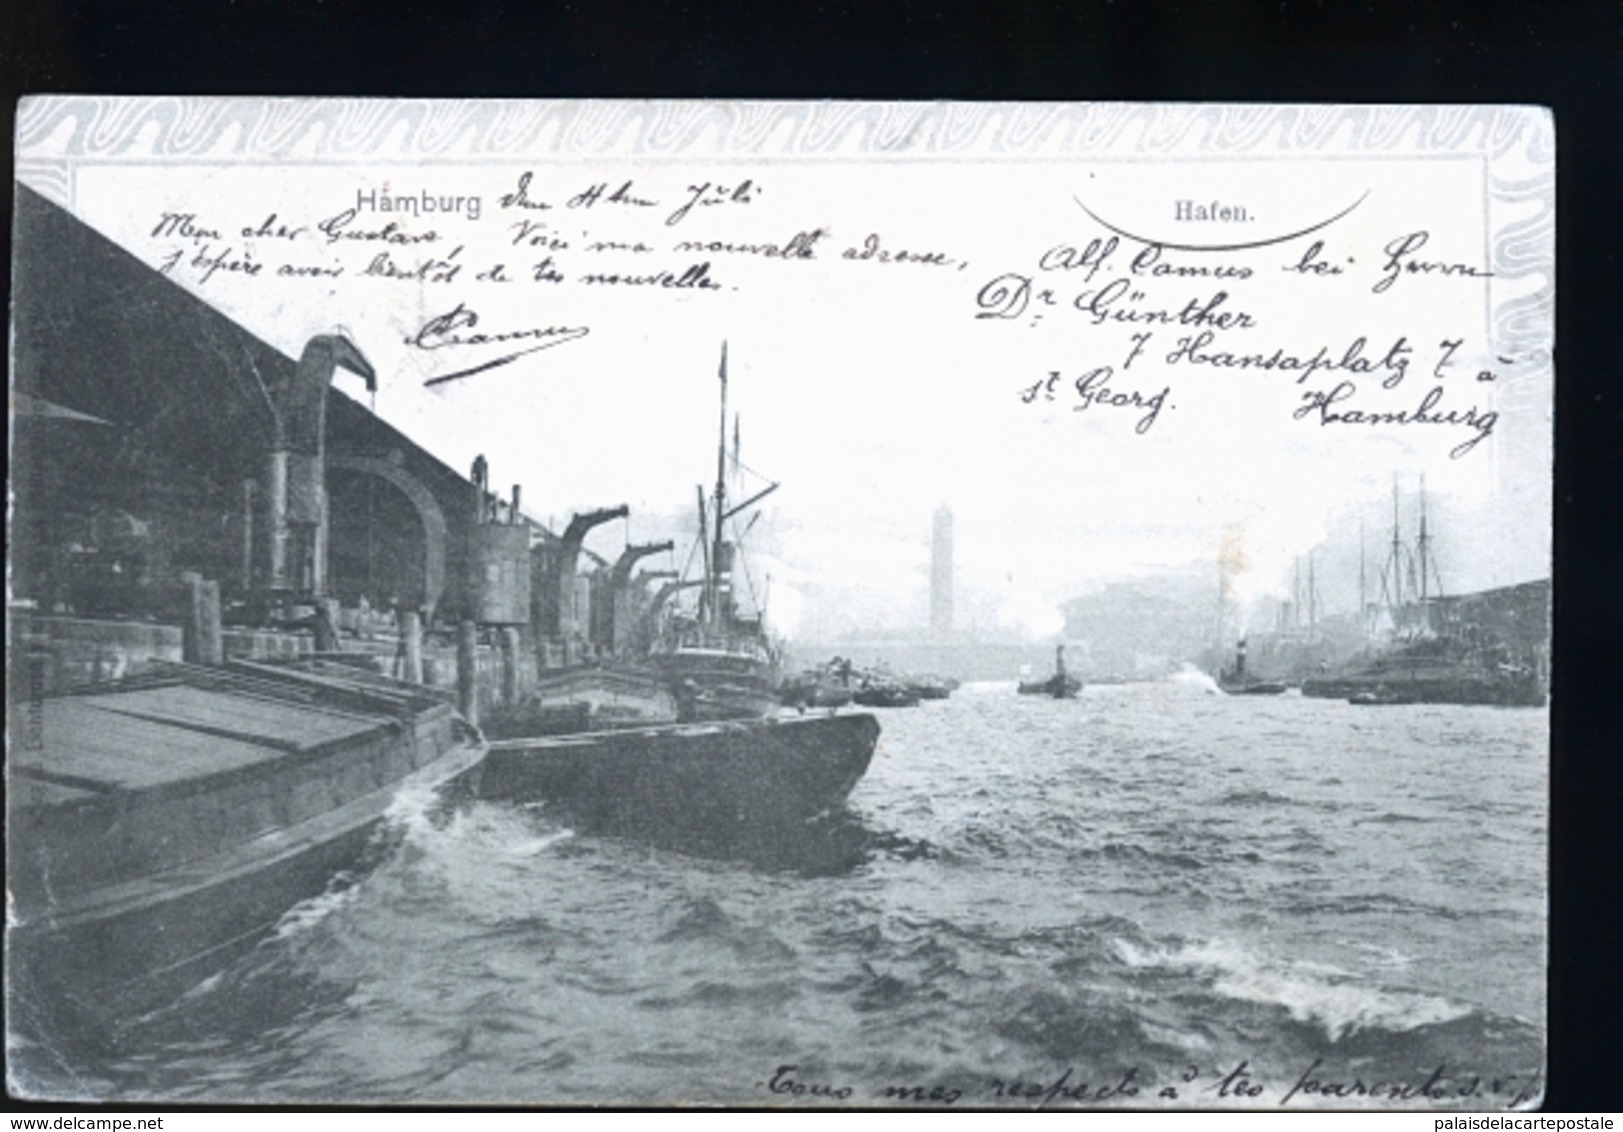 Hamburg den 4ten Juli
Hafen.
Mon cher Gustave, Voici ma nouvelle adresse,
j'espère avoir bientôt de tes nouvelles.
ACamus
Alf. Camus bei Herrn
Dr. Günther
7 Hansaplatz 7 à
St. Georg. Hamburg
Tous mes respects à tes parents s.v.p.
delcampe.net
palaisdelacartepostale